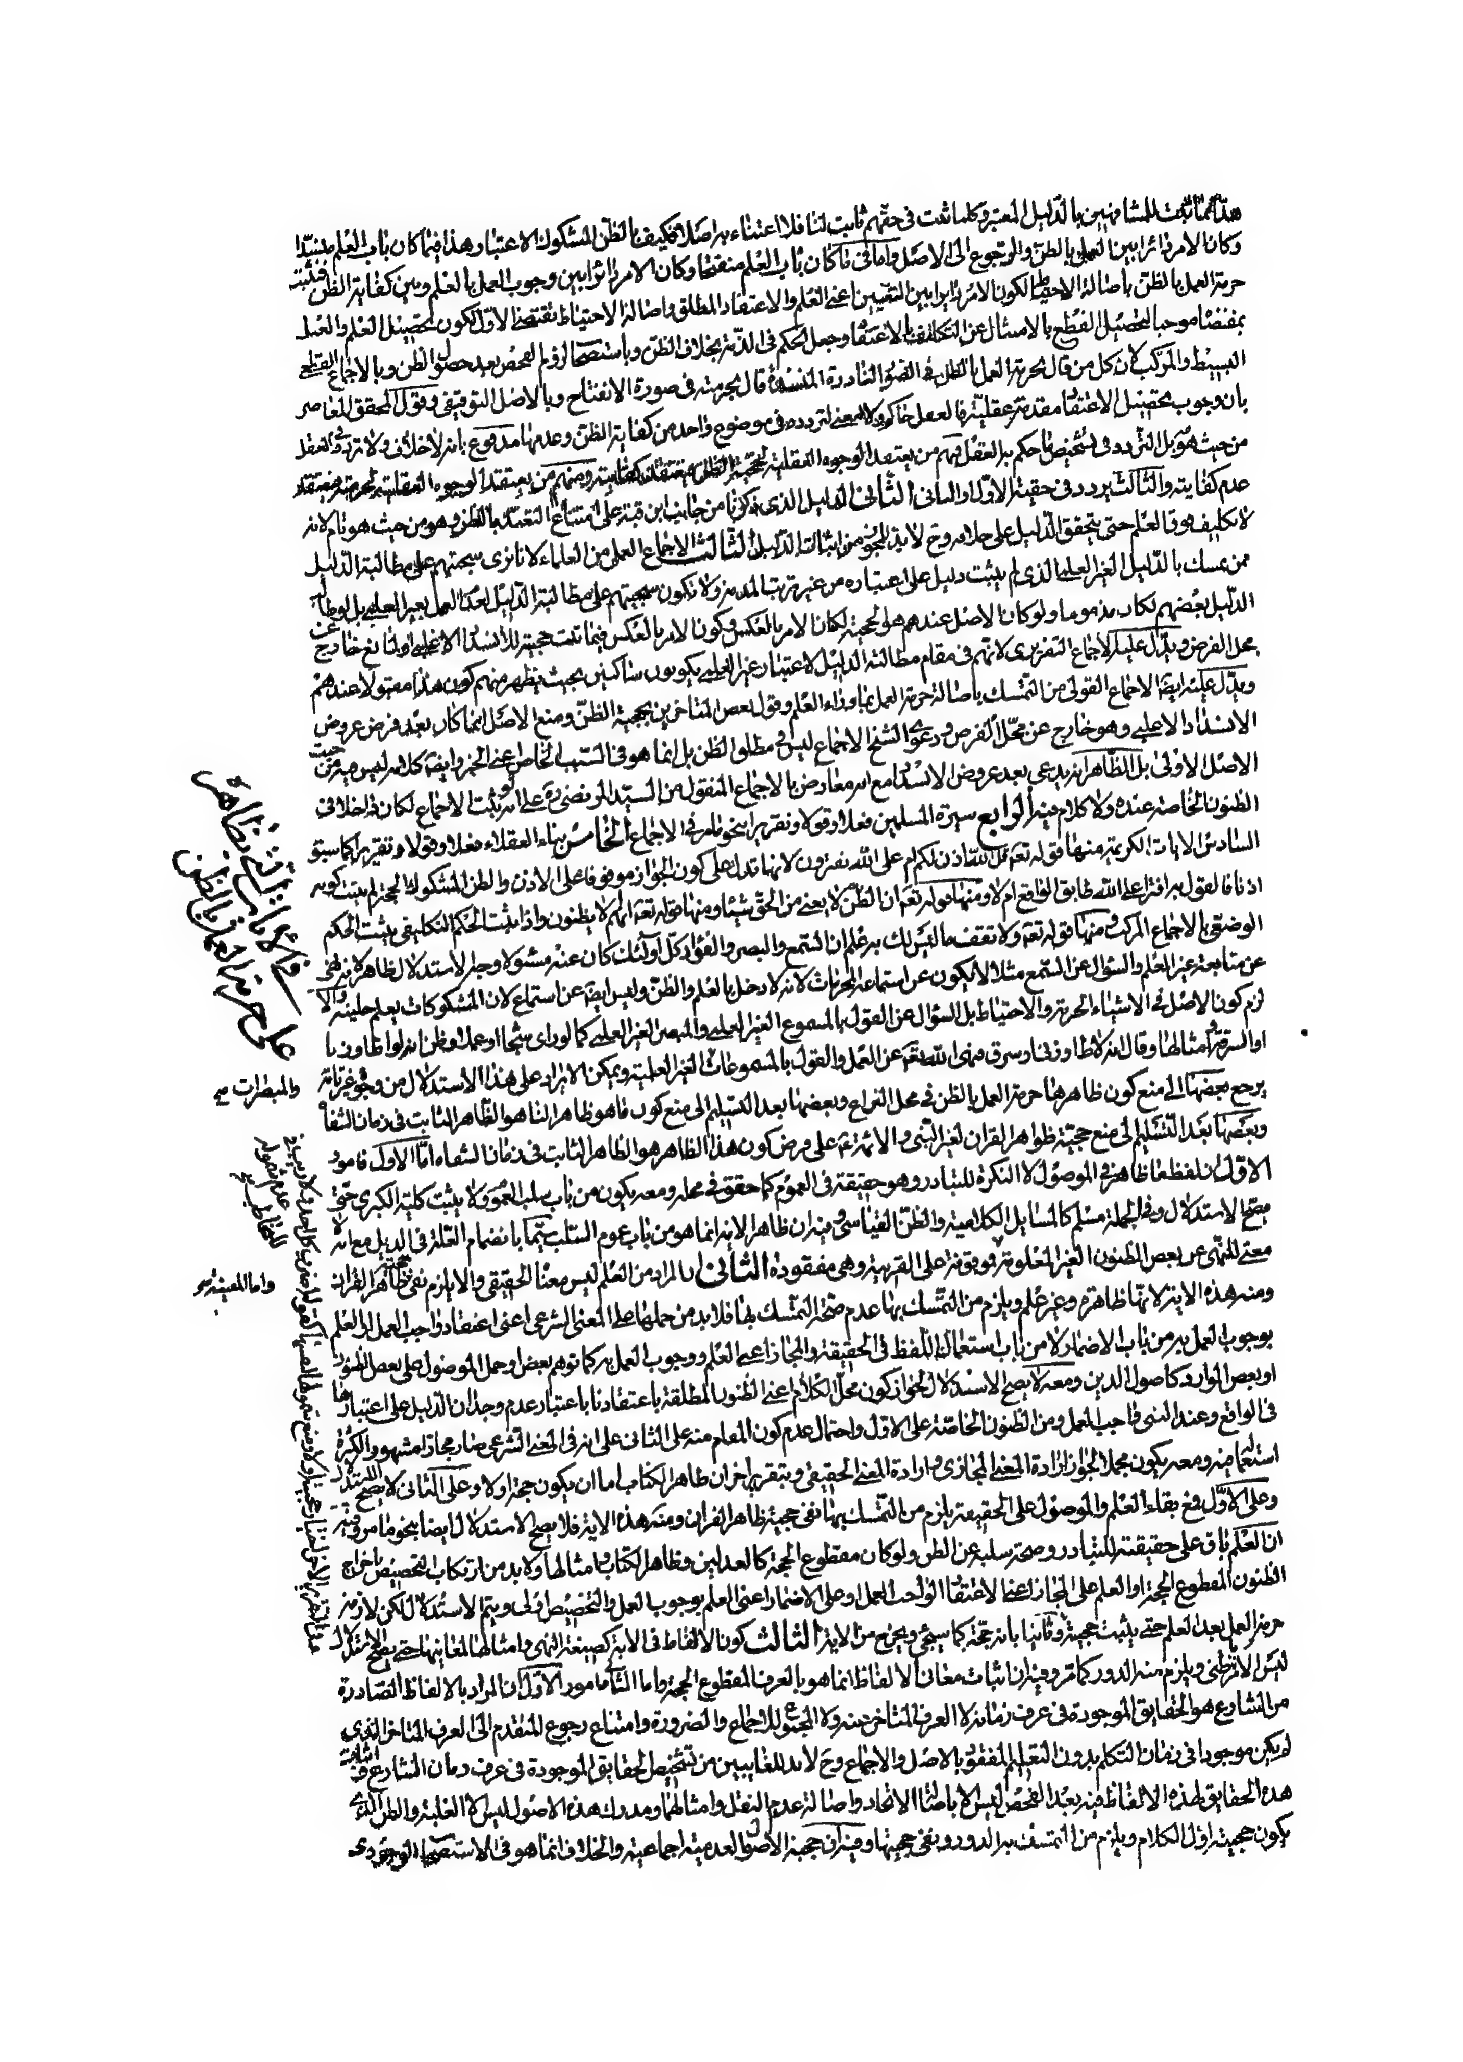 هذا مما ثبت للمشافهين بالدليل المعتبر وكلما ثبت فى حقهم ثابت لنا فلا اعتناء به اصلا فكيف بالظن المشكوك الاعتبار وهذا فيما كان باب العلم منسدا
وكان الامر دائرا بين العمل بالظن والرجوع الى الاصل واما فى ما كان باب العلم منفتحا وكان الامر دائرا بين وجوب العمل بالعلم وبين كفاية الظن فيثبت
حرمة العمل بالظن باصالة الاحتياط لكون الامر دايرا بين التعيين اعنى العلم والاعتقاد المطلق واصالة الاحتياط تقتضى الاول لكون تحصيل العلم والعمل
بمقتضاه موجبا لتحصيل القطع بالامتثال عن التكليف بالاعتقاد وجعل الحكم فى الذمة بخلاف الظن وباستصحاب لزوم الفحص بعد حصول الظن وبالاجماع القطعى
البسيط والمركب لان كل من قال بحرمة العمل بالظن فى الصورة النادرة المنسدة قال بحرمته فى صورة الانفتاح وبالاصل التوقيفى وقول المحقق المعاصر
بان وجوب تحصيل الاعتقاد مقدمة عقلية فالعقل حاكم ولا معنى لتردده فى موضوع واحد من كفاية الظن وعدمها مدفوع بانه لا خلاف ولا تردد فى العقل
من حيث هو بل التردد فى تشخيص ما حكم به العقل فمنهم من يعتقد الوجوه العقلية لحجية الظن فيعتقد كفايته ومنهم من يعتقد الوجوه العقلية لحرمته فيعتقد
عدم كفايته والثالث يردد فى حقية الاول والثانى الثانى الدليل الذى ذكرنا من جانب ابن قبة على امتناع التعبد بالظن وهو من حيث هو تام لانه
لا تكليف فوق العلم حتى يتحقق الدليل على خلافه وح لا بد للمجوز من اثبات الدليل الثالث الاجماع العملى من العلماء لانا نرى سجيتهم على مطالبة الدليل
ممن تمسك بالدليل الغير العلمى الذى لم يثبت دليل على اعتباره من غير ترتب المذمة ولا تكون سجيتهم على مطالبة الدليل لعدم العمل بغير العلمى بل لو طالب
الدليل بعضهم لكان مذموما ولو كان الاصل عندهم هو الحجية لكان الامر بالعكس وكون الامر بالعكس فيما ثبت حجيته للانسداد الاغلبى او لمانع خارج عن
محل الفرض ويدل عليه الاجماع التقريرى لانهم فى مقام مطالبة الدليل لاعتبار غير العلمى يكونون ساكتين بحيث يظهر منهم كون هذا مقبولا عندهم
ويدل عليه ايضا الاجماع القولى من التمسك باصالة حرمة العمل بما وراء العلم وقول بعض المتاخرين بحجية الظن ومنع الاصل انما كان بعد فرض عروض
الانسداد الاغلبى وهو خارج عن محل الفرض ودعوى الشيخ الاجماع ليس فى مطلق الظن بل انما هو فى السبب الخاص اعنى الخبر وايضا كلامه ليس فيه من حيث
الاصل الاولى بل الظاهر انه يدعى بعد عروض الانسداد مع انه معارض بالاجماع المنقول من السيد المرتضى ره على انه لو ثبت الاجماع لكان داخلا فى
الظنون الخاصة عنده ولا كلام فيه الرابع سيرة المسلمين فعلا وقولا وتقريرا بنحو ما مر فى الاجماع الخامس بناء العقلاء فعلا وقولا وتقريرا كما سبق
السادس الايات الكريمة منها قوله تعه قل الله اذن لكم ام على الله تفترون لانها تدل على كون الجواز موقوفا على الاذن والظن المشكوك الحجية لم يثبت كونه
اذنا فالقول به افترا على الله طابق الواقع ام لا ومنها قوله تعه ان الظن لا يغنى من الحق شيئا ومنها قوله تعه انهم لا يظنون واذا يثبت الحكم التكليفى يثبت الحكم
الوضعى بالاجماع المركب ومنها قوله تعه ولا تقف ما ليس لك به علم ان السمع والبصر والفؤاد كل اولئك كان عنه مسئولا وجه الاستدلال ظاهر لانه نهى
عن متابعة غير العلم والسؤال عن السمع مثلا لا يكون عن استماع المحرمات لانه لا دخل بالعلم والظن وليس ايضا عن استماع لان المشكوكات يعلم حليته والا
لزم كون الاصل فى الاشياء الحرمة والاحتياط بل السؤال عن القول بالمسموع الغير العلمى والمبصر الغير العلمى كما لو راى شيئا او عمل او ظن انه لواط او زنا
او السرقة وامثالها وقال انه لاط او زنى او سرق فنهى الله تعه عن العمل والقول بالمسموعات الغير العلمية ويمكن الايراد على هذا الاستدلال من وجوه غير تامة
يرجع بعضها الى منع كون ظاهرها حرمة العمل بالظن فى محل النزاع وبعضها بعد التسليم الى منع كون ما هو ظاهر لنا هو الظاهر الثابت فى زمان الشفاه
وبعضها بعد التسليم الى منع حجية ظواهر القران لغير النبى والائمة عه على فرض كون هذا الظاهر هو الظاهر الثابت فى زمان الشفاه اما الاول فامور
الاول ان لفظ ما ظاهر فى الموصول لا النكرة للتبادر وهو حقيقة فى العموم كما حقق فى محله ومعه يكون من باب سلب العموم ولا يثبت كلية الكبرى حتى
يصح الاستدلال وفى الجملة مسلم كالمسايل الكلامية والظن القياسى وفيه ان ظاهر الاية انما هو من باب عموم السلب سيما بانضمام العلة فى الذيل مع انه لا
معنى للنهى عن بعض الظنون الغير المعلومة موقوفة على القرينة وهى مفقودة الثانى ان المراد من العلم ليس معناه الحقيقى والا يلزم نفى حجية ظاهر القران
ومنه هذه الاية لانها ظاهرة وغير علم ويلزم من التمسك بها عدم صحة التمسك بها فلا بد من حملها على المعنى الشرعى اعنى اعتقاد واجب العمل او العلم
بوجوب العمل به من باب الاضمار لا من باب استعمال اللفظ فى الحقيقة والمجاز اعنى العلم ووجوب العمل به كما توهم بعض او حمل الموصول على بعض الظنون
او بعض الموارد كاصول الدين ومعه لا يصح الاستدلال لجواز كون محل الكلام اعنى الظنون المطلقة باعتقادنا باعتبار عدم وجدان الدليل على اعتبارها
فى الواقع وعند النبى واجب العمل ومن الظنون الخاصة على الاول واحتمال عدم كون المقام منه على الثانى على انه فى المعنى الشرعى صار مجازا مشهورا لكثرة
استعماله فيه ومعه يكون مجملا لجواز ارادة المعنى المجازى وارادة المعنى الحقيقى وبتقرير اخر ان ظاهر الكتاب اما ان يكون حجة اولا وعلى الثانى لا يصح الاستدلال
وعلى الاول فمع بقاء العلم والموصول على الحقيقة يلزم من التمسك بها نفى حجية ظاهر القران ومنه هذه الاية فلا يصح الاستدلال ايضا بنحو ما مر وفيه
ان العلم باق على حقيقته للتبادر وصحة سلبه عن الظن ولو كان مقطوع الحجة كالعدلين وظاهر الكتاب وامثالها ولا بد من ارتكاب التخصيص باخراج
الظنون المقطوع الحجة او العلم على المجاز اعنى الاعتقاد الواجب العمل او على الاضمار اعنى العلم بوجوب العمل والتخصيص اولى ويتم الاستدلال لكن لازمه
حرمة العمل بعد العلم حتى يثبت حجيته وثانيا بانه حجة كما سيجئ ويخرج من الاية الثالث كون الالفاظ فى الاية كصيغة النهى وامثالها لمعانيها حتى يصح الاستدلال
ليس الا امر ظنى ويلزم منه الدور كما مر وفيه ان اثبات معانى الالفاظ انما هو بالعرف المقطوع الحجة واما الثانى فامور الاول ان المراد بالالفاظ الصادرة
من الشارع هو الحقايق الموجودة فى عرف زمانه لا العرف المتاخر عنه ولا المجتمع للاجماع والضرورة وامتناع رجوع المتقدم الى العرف المتاخر الذى
لم يكن موجودا فى زمان التكلم بدون التعليم المفقود بالاصل والاجماع وح لا بد للغايبين من تشخيص الحقايق الموجودة فى عرف زمان الشارع واثبات
هذه الحقايق لهذه الالفاظ فيه بعد الفحص ليس الا باصالة الاتحاد واصالة عدم النقل وامثالها ومدرك هذه الاصول ليس الا الغلبة والظن الذى
يكون حجيته اول الكلام ويلزم من التمسك به الدور ونفى حجيتها وفيه ان حجية الاصول العدمية اجماعية والخلاف انما هو فى الاستصحاب الوجودى
على حرمة العمل بالظن
والمبصرات صح
واما المعينة صح